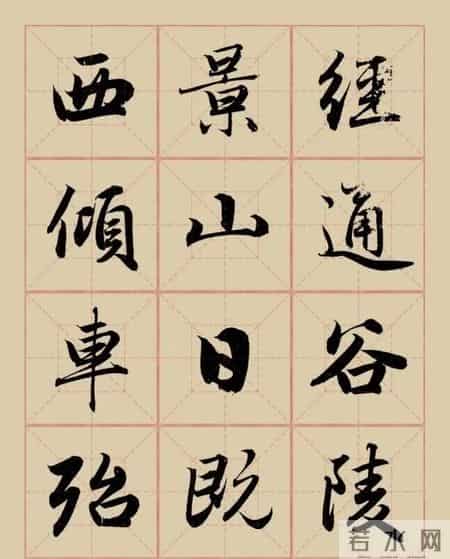 經通谷陵
景山日既
西傾車殆
若水网